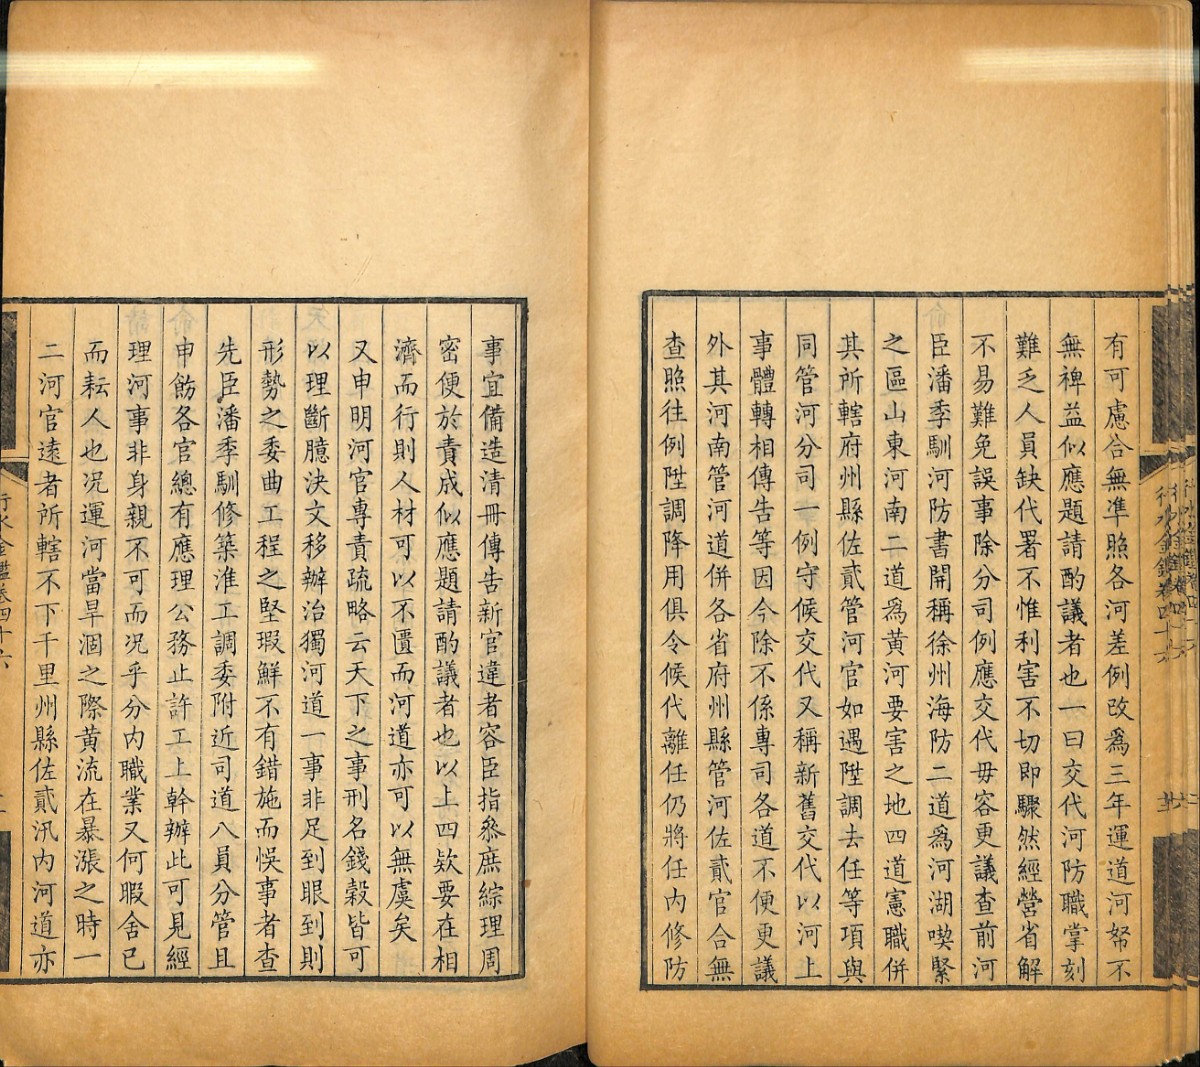 有可慮合無準照各河差例改為三年運道河帑不
無裨益似應題請酌議者也一曰交代河防職掌刻
難乏人員缺代署不惟利害不切即驟然經營省解
不易難免誤事除分司例應交代毋容更議查前河
臣潘季馴河防書開稱徐州海防二道為河湖喫緊
之區山東河南二道為黃河要害之地四道憲職併
其所轄府州縣佐貳管河官如遇陞調去任等項與
同管河分司一例守候交代又稱新舊交代以河上
事體轉相傳告等因今除不係專司各道不便更議
外其河南管河道併各省府州縣管河佐貳官合無
查照往例陞調降用俱令候代離任仍將任內修防
事宜備造清冊傳告新官違者容臣指叅庶綜理周
密便於責成似應題請酌議者也以上四欵要在相
濟而行則人材可以不匱而河道亦可以無虞矣
又申明河官專責疏略云天下之事刑名錢穀皆可
以理斷臆決文移辦治獨河道一事非足到眼到則
形勢之委曲工程之堅瑕鮮不有錯施而悞事者查
先臣潘季馴修築淮工調委附近司道八員分管且
申飭各官總有應理公務止許工上幹辦此可見經
理河事非身親不可而况乎分內職業又何暇舍己
而耘人也况運河當旱涸之際黃流在暴漲之時一
二河官遠者所轄不下千里州縣佐貳汛內河道亦
行水金鑑卷四十六